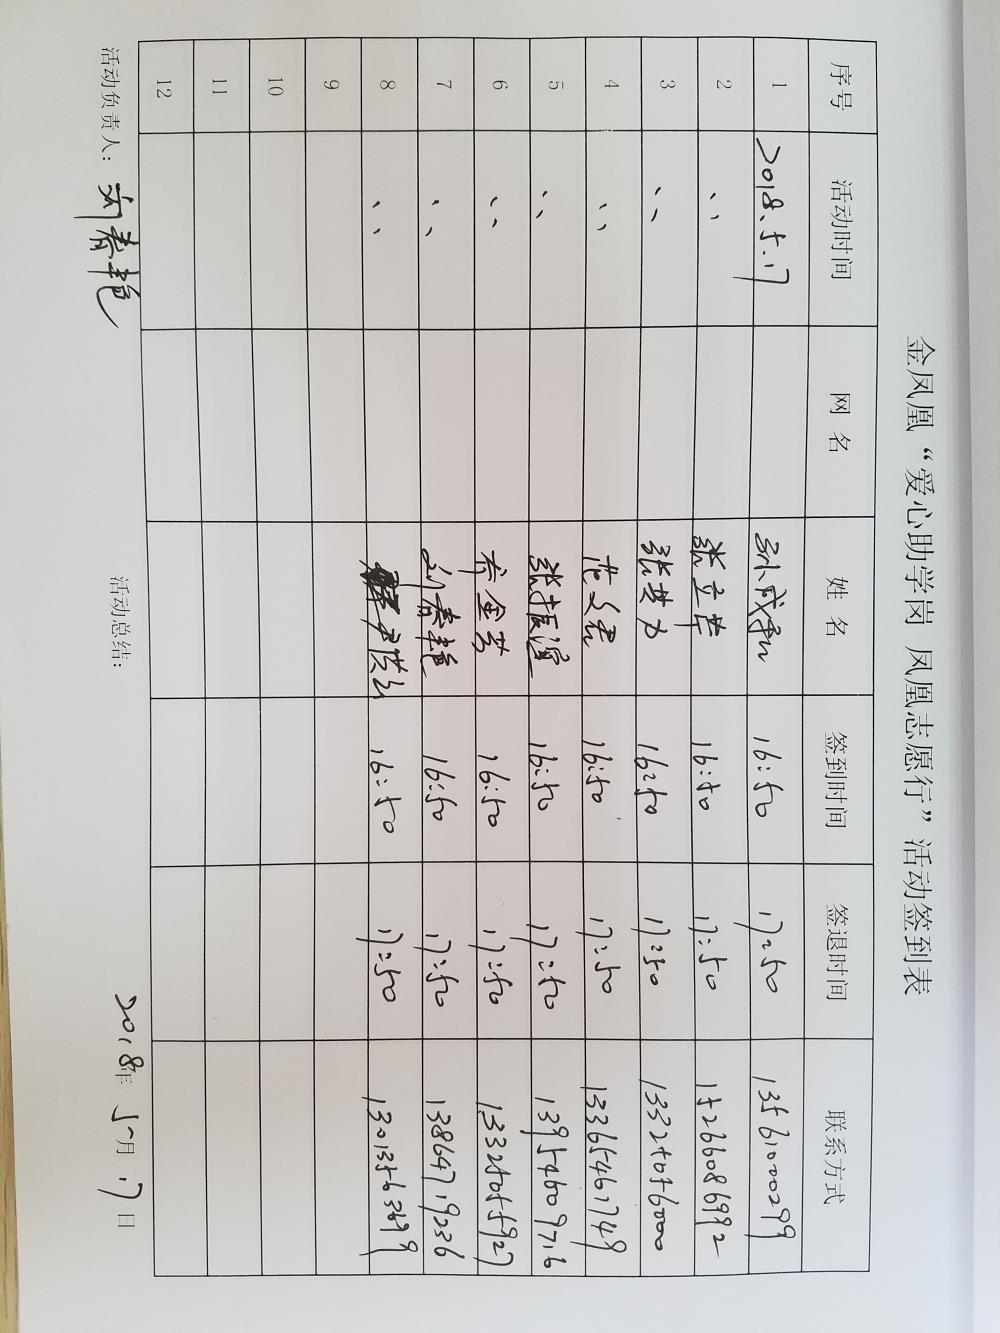 金凤凰“爱心助学岗 凤凰志愿行”活动签到表
序号 活动时间 网 名 姓 名 签到时间 签退时间 联系方式
1 2018.5.17 16:50 17:50 13561000299
2 〃 张立华 16:50 17:50 15266086992
3 〃 16:50 17:50 13325056000
4 〃 16:50 17:50 13365461749
5 〃 张振滨 16:50 17:50 13954609716
6 〃 16:50 17:50 13325055927
7 〃 刘春艳 16:50 17:50 13864719236
8 〃 16:50 17:50 13013563699
9
10
11
12
活动负责人：刘春艳 活动总结： 2018年5月17日